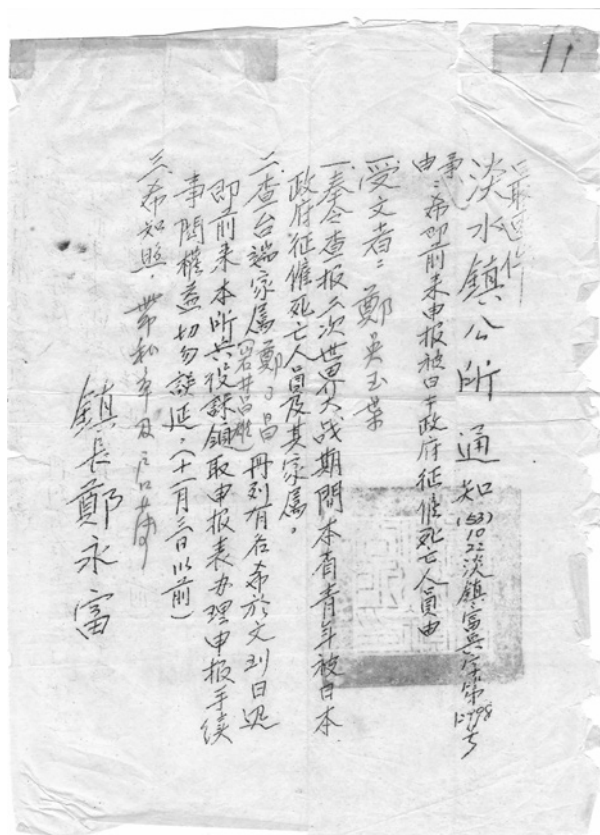 11
最速件
淡水鎮公所 通知 (53)10.22淡鎮富兵字第12798号
事由：希即前来申报被日本政府征傭死亡人員由
受文者：鄭吴玉葉
一.奉令查报二次世界大战期間本省青年被日本
政府征傭死亡人員及其家属。
二.查台端家属鄭子昌(岩井昌雄)冊列有名希於文到日迅
即前来本所兵役課領取申报表办理申报手续
事関權益切勿誤延。(十一月三日以前)
三.希知照. 带私章及户口簿
鎮長鄭永富